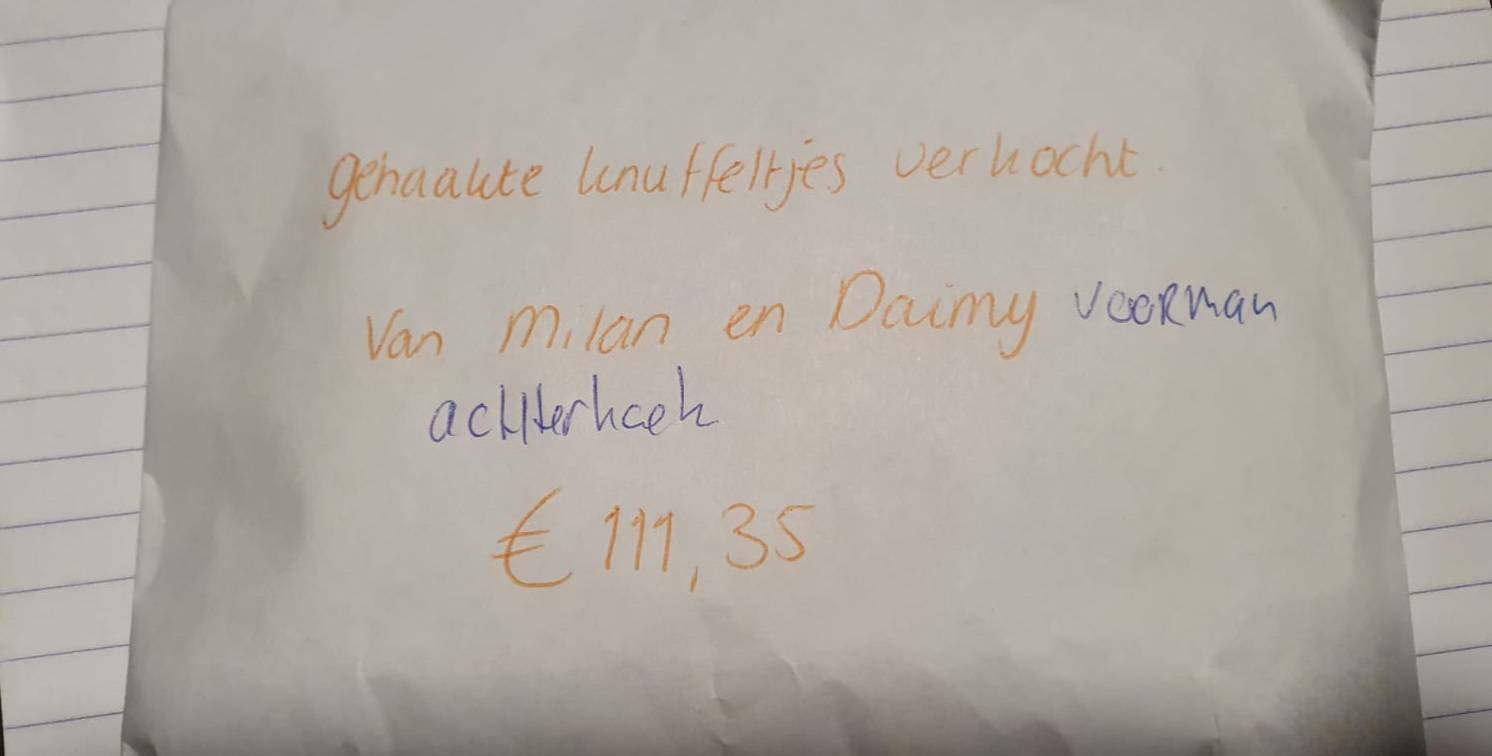 gehaakte knuffeltjes verkocht.
Van Milan en Daimy voorman
achterhoek
€ 111,35